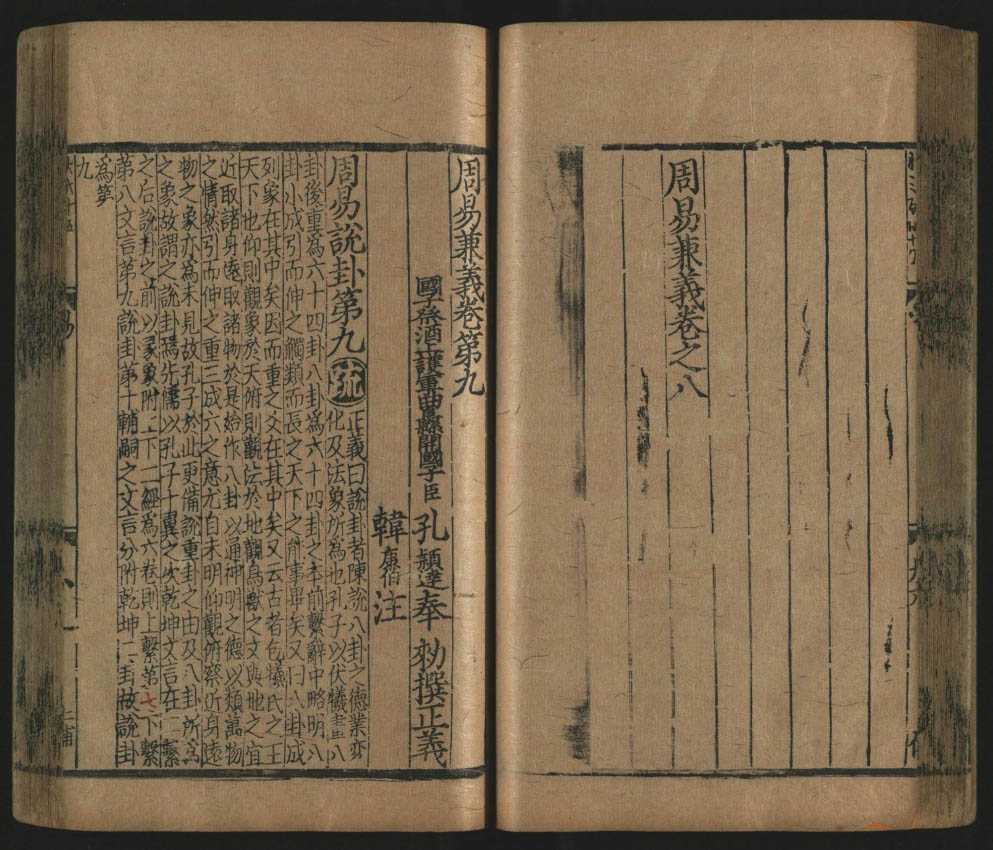 周易兼義卷之八
周易兼義卷第九
國子祭酒上護軍曲阜縣開國子臣孔穎達奉勑撰正義
韓康伯注
周易說卦第九疏正義曰說卦者陳說八卦之德業変
化及法象所爲也孔子以伏犧畫八
卦後重爲六十四卦八卦爲六十四卦之本前繫辭中略明八
卦小成引而伸之觸類而長之天下之能事畢矣又曰八卦成
列象在其中矣因而重之爻在其中矣又云古者包犧氏之王
天下也仰則觀象於天俯則觀法於地觀鳥獸之文與地之宜
近取諸身遠取諸物於是始作八卦以通神明之德以類萬物
之情然引而伸之重三成六之意尤自未明仰觀俯察近身遠
物之象亦爲未見故孔子於此更備說重卦之由及八卦所爲
之象故謂之說卦焉先儒以孔子十翼之次乾坤文言在二繫
之后說卦之前以彖象附上下二經爲六卷則上繫第七下繫
第八文言第九說卦第十輔嗣之文言分附乾坤二卦故說卦
爲第
九